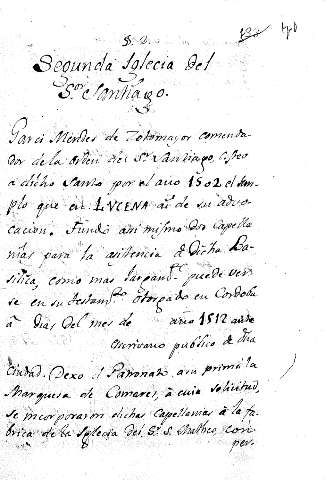 §. 2.
Segunda Iglecia del
Sor Santiago.
Garci Mendes de Sotomayor comenda-
dor de la orden del Sr. Santiago,
a dicho Santo por el año 1502 el tem-
plo que en LUCENA de su advo-
cacion. Fundó asi mismo dos capella-
nias para la asistencia de dicha Ba-
silica, como mas largamte. puede ver-
se en su testamto. otorgado en Cordoba
á dias del mes de año 1512 ante
escrivano publico de dha
ciudad. Dexo el Patronato a su prima la
Marquesa de Comares, á cuia solicitud,
se incorporaron dichas capellanias à la fa-
brica de la Iglecia del Sr. S. Matheo, con
per-